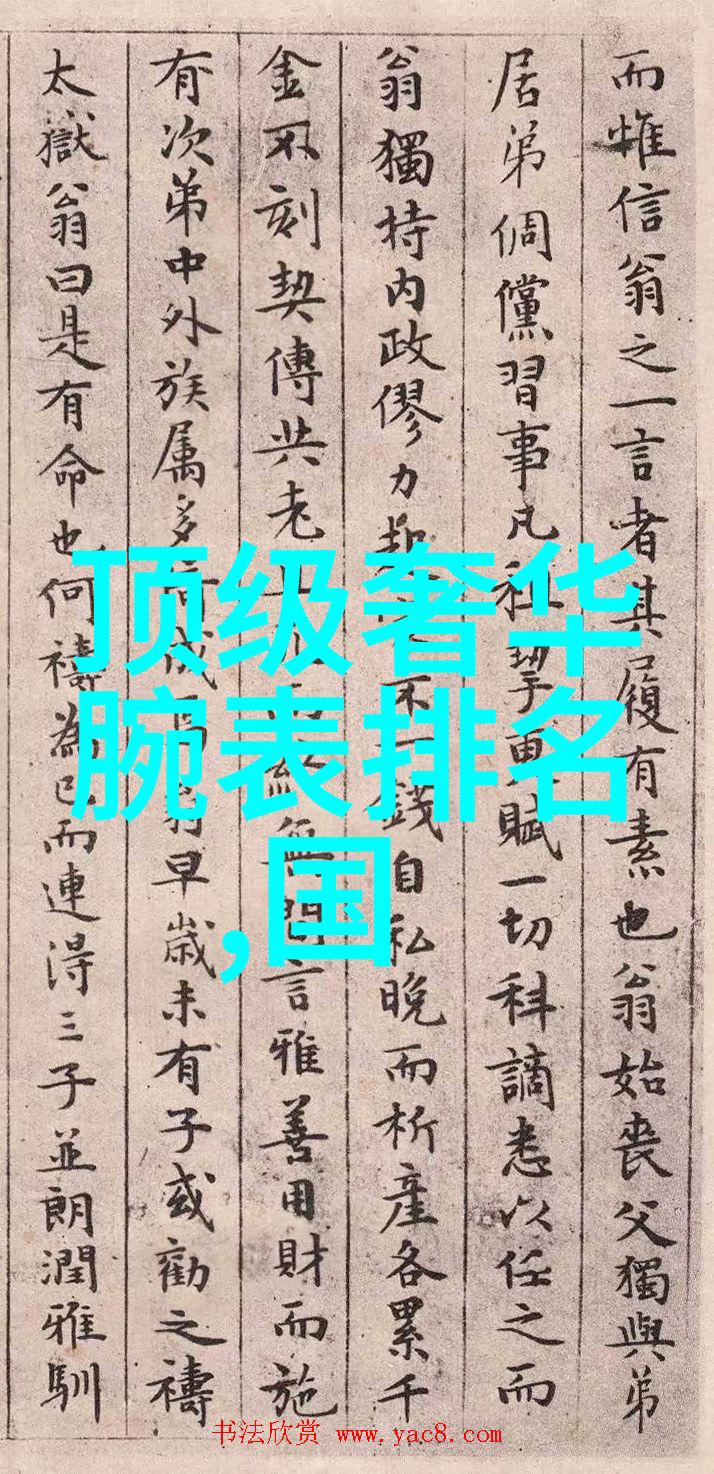 而惟信翁之一言者其履有素也翁始喪父獨與弟
居弟倜儻習事凡租挈更賦一切科謫悉以任之而
翁獨持内政僇力起不一錢自私晚而析產各累千
金不刻契傳共老無間言雅善用財而施
有次弟中外族属多待成焉翁早歲未有子或勸之禱
太嶽翁曰是有命也何禱為已而連得三子並朗潤雅馴
顶级奢华
腕表排名
,国
书法欣赏 www.yac8.com